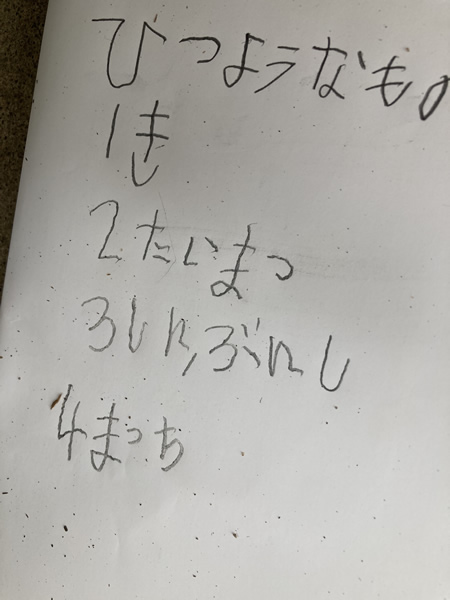 ひつようなもの
1き
2たいまつ
3しんぶんし
4まっち